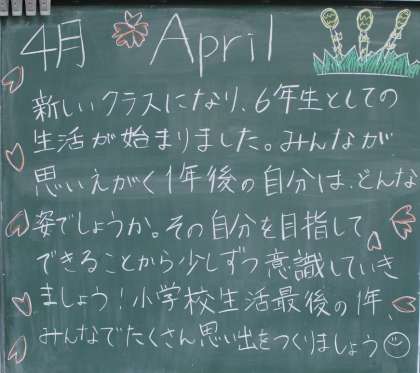 4月 April
新しいクラスになり、6年生としての
生活が始まりました。みんなが
思いえがく1年後の自分は、どんな
姿でしょうか。その自分を目指して
できることから少しずつ意識していき
ましょう!小学校生活最後の1年、
みんなでたくさん思い出をつくりましょう